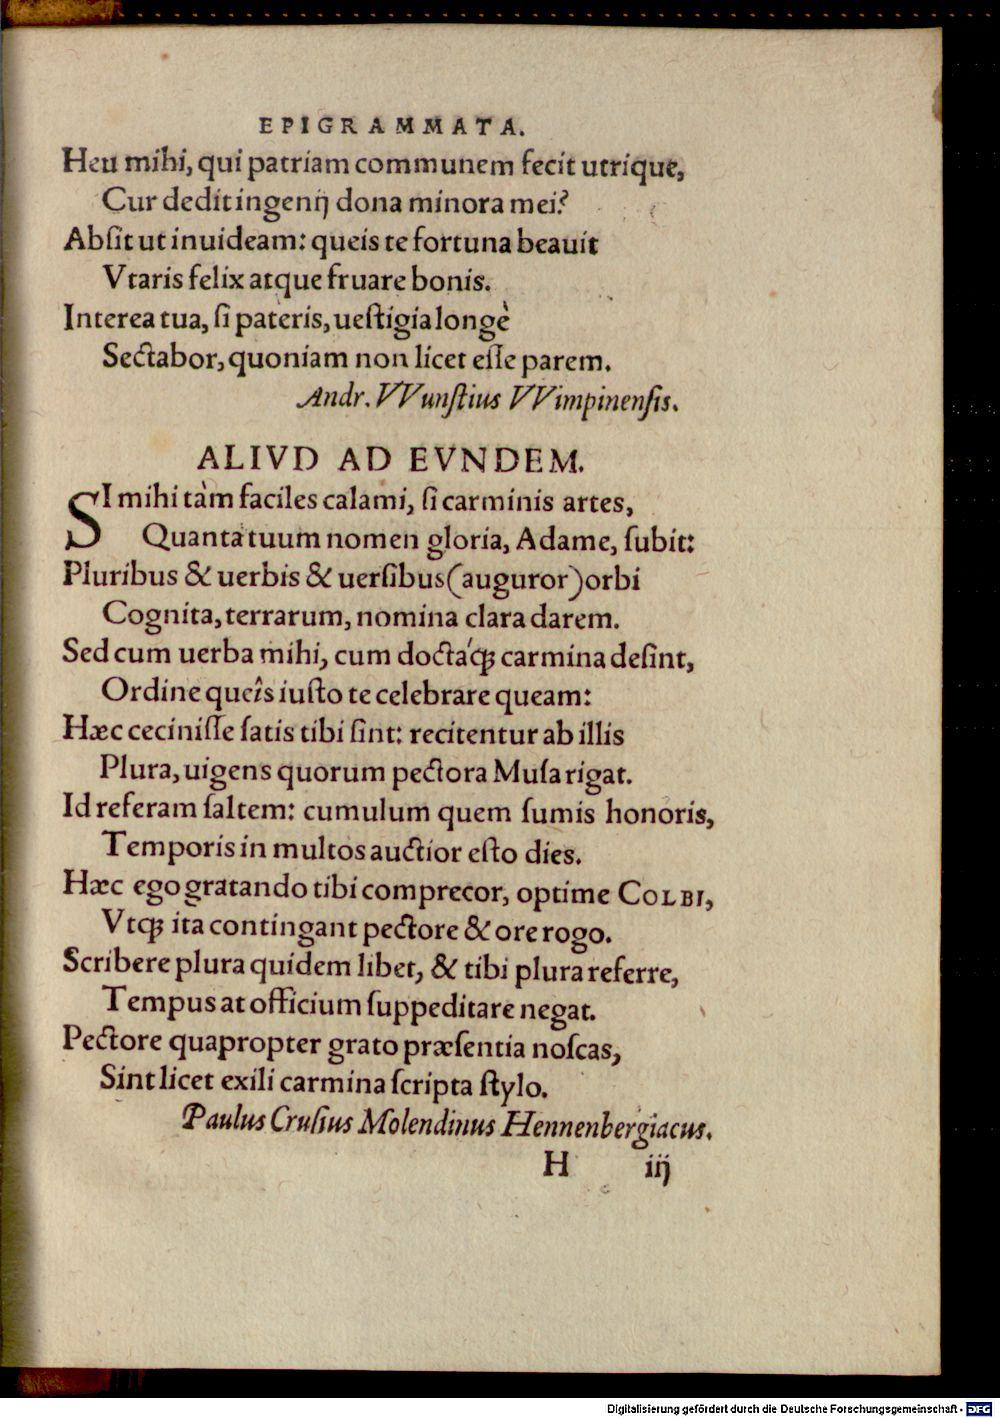 EPIGRAMMATA.
Heu mihi, qui patriam communem fecit utrique,
Cur dedit ingenij dona minora mei?
Abſit ut inuideam: queis te fortuna beauit
Vtaris felix atque fruare bonis.
Interea tua, ſi pateris, ueſtigia longè
Sectabor, quoniam non licet eſſe parem.
Andr. VVunſtius VVimpinenſis.
ALIVD AD EVNDEM.
SI mihi tàm faciles calami, ſi carminis artes,
Quanta tuum nomen gloria, Adame, ſubit:
Pluribus & uerbis & uerſibus (auguror) orbi
Cognita, terrarum, nomina clara darem.
Sed cum uerba mihi, cum doctáq; carmina deſint,
Ordine queîs iuſto te celebrare queam:
Hæc ceciniſſe ſatis tibi ſint: recitentur ab illis
Plura, uigens quorum pectora Muſa rigat.
Id referam ſaltem: cumulum quem ſumis honoris,
Temporis in multos auctior eſto dies.
Hæc ego gratando tibi comprecor, optime COLBI,
Vtq; ita contingant pectore & ore rogo.
Scribere plura quidem libet, & tibi plura referre,
Tempus at officium ſuppeditare negat.
Pectore quapropter grato præſentia noſcas,
Sint licet exili carmina ſcripta ſtylo.
Paulus Cruſius Molendinus Hennenbergiacus.
H iij
Digitalisierung gefördert durch die Deutsche Forschungsgemeinschaft - DFG